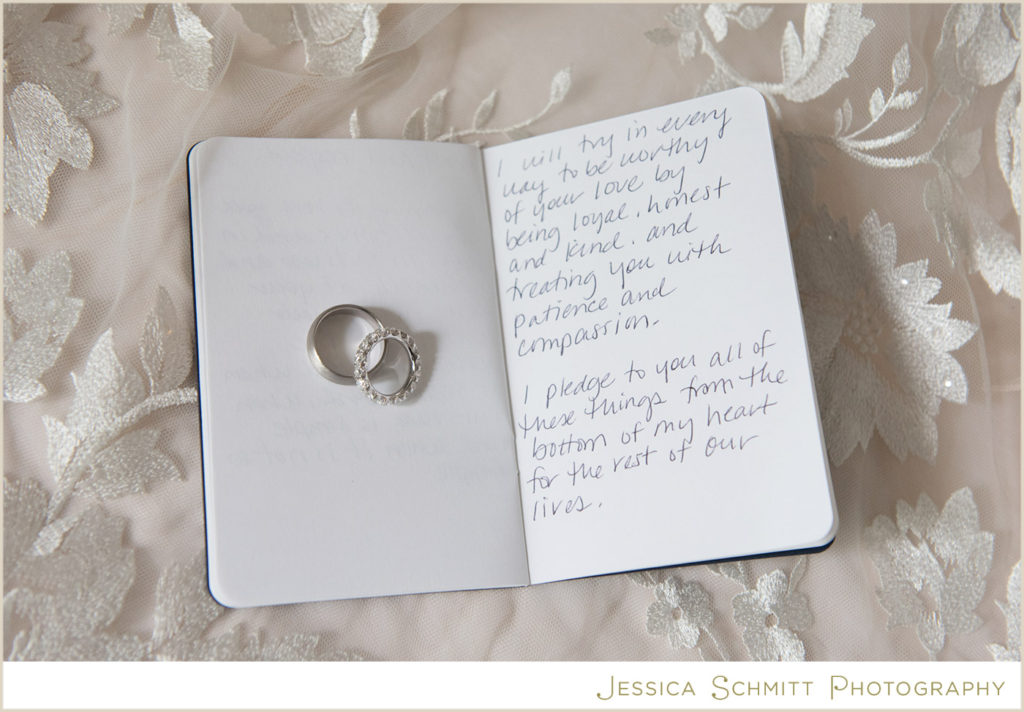 I will try in every
way to be worthy
of your love by
being loyal, honest
and kind, and
treating you with
patience and
compassion.
I pledge to you all of
these things from the
bottom of my heart
for the rest of our
lives.
Jessica Schmitt Photography